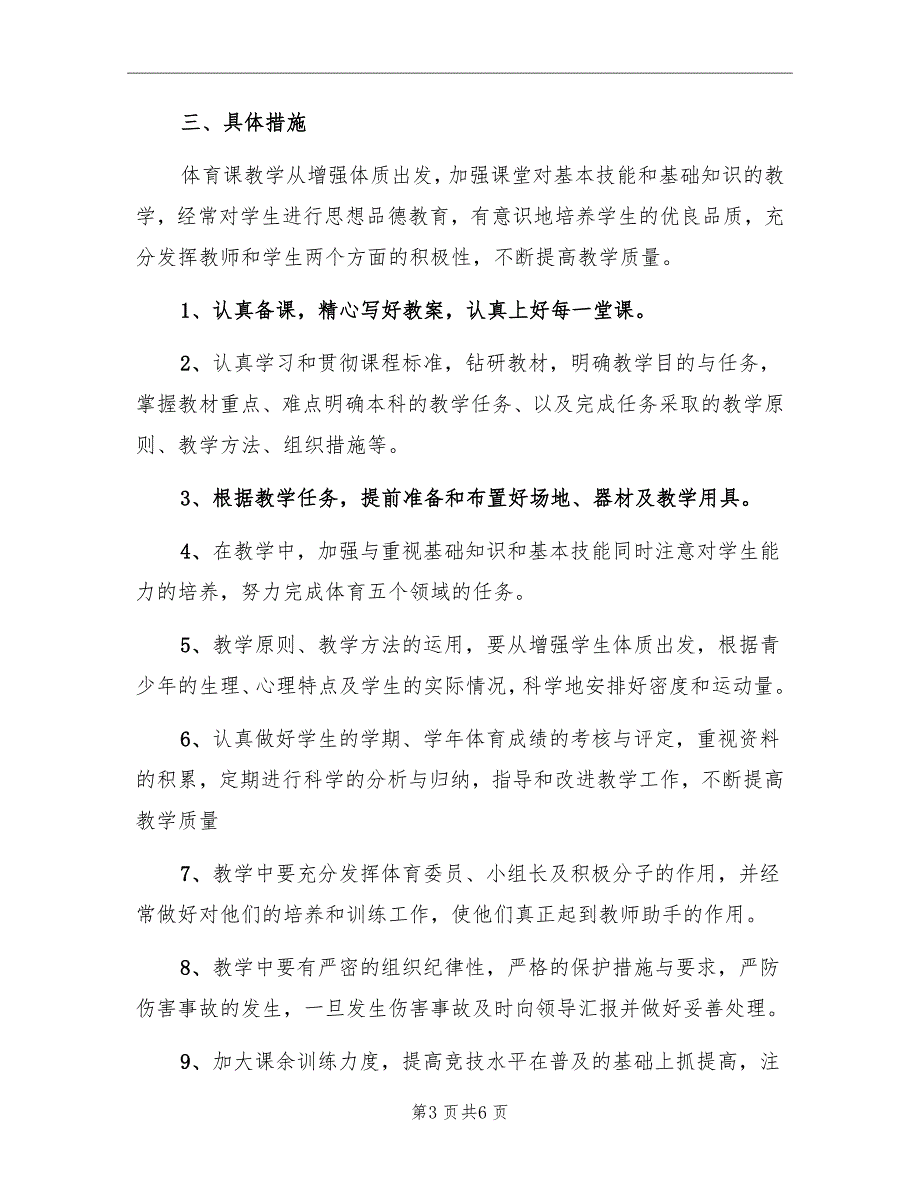 三、具体措施
体育课教学从增强体质出发，加强课堂对基本技能和基础知识的教
学，经常对学生进行思想品德教育，有意识地培养学生的优良品质，充
分发挥教师和学生两个方面的积极性，不断提高教学质量。
1、认真备课，精心写好教案，认真上好每一堂课。
2、认真学习和贯彻课程标准，钻研教材，明确教学目的与任务，
掌握教材重点、难点明确本科的教学任务、以及完成任务采取的教学原
则、教学方法、组织措施等。
3、根据教学任务，提前准备和布置好场地、器材及教学用具。
4、在教学中，加强与重视基础知识和基本技能同时注意对学生能
力的培养，努力完成体育五个领域的任务。
5、教学原则、教学方法的运用，要从增强学生体质出发，根据青
少年的生理、心理特点及学生的实际情况，科学地安排好密度和运动量。
6、认真做好学生的学期、学年体育成绩的考核与评定，重视资料
的积累，定期进行科学的分析与归纳，指导和改进教学工作，不断提高
教学质量
7、教学中要充分发挥体育委员、小组长及积极分子的作用，并经
常做好对他们的培养和训练工作，使他们真正起到教师助手的作用。
8、教学中要有严密的组织纪律性，严格的保护措施与要求，严防
伤害事故的发生，一旦发生伤害事故及时向领导汇报并做好妥善处理。
9、加大课余训练力度，提高竞技水平在普及的基础上抓提高，注
第3 页共6 页